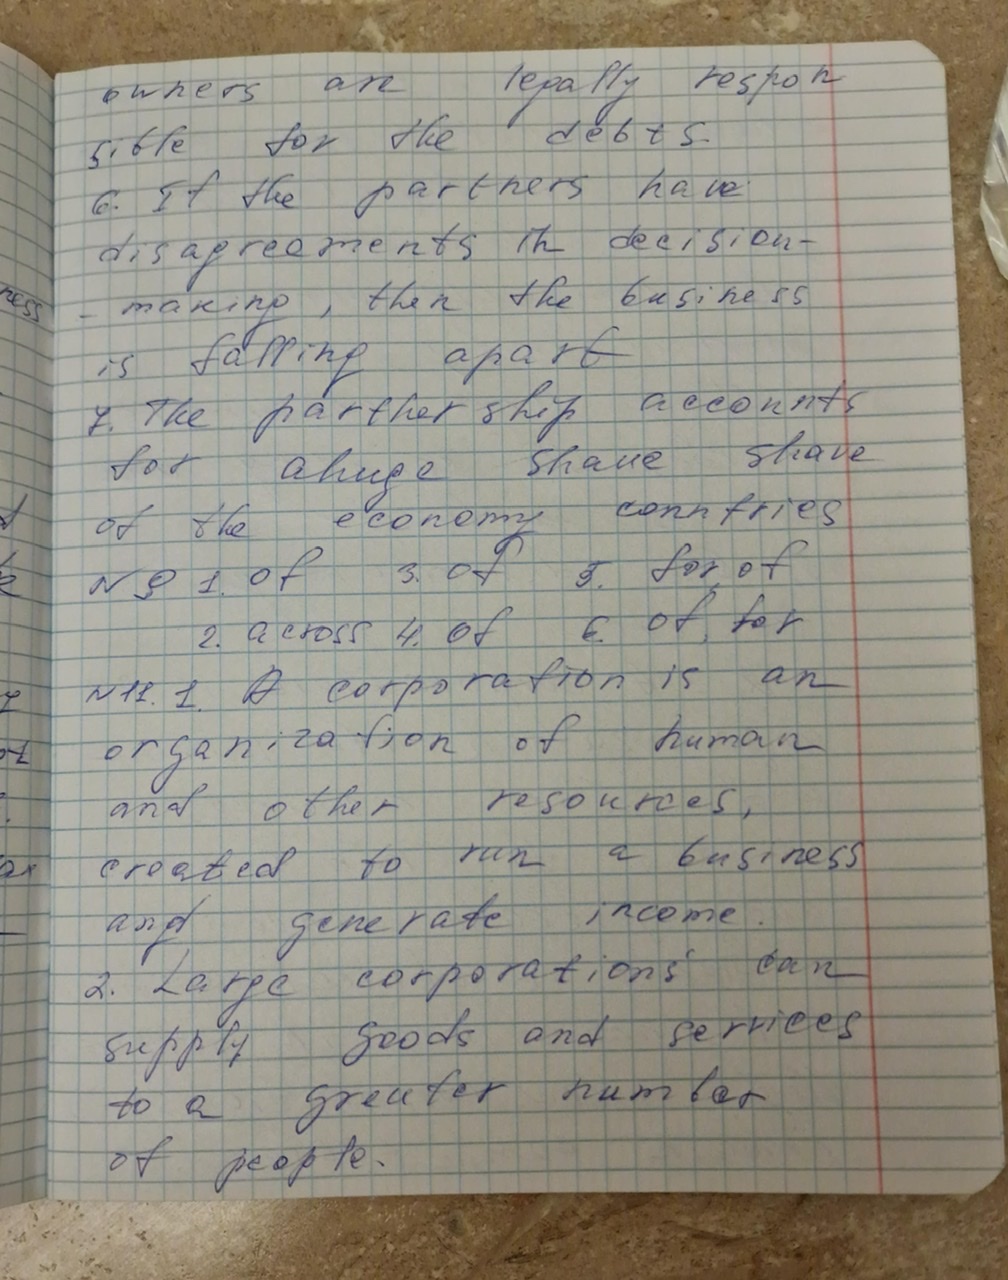 owners are legally respon
sible for the debts.
6. If the partners have
disagreements in decision-
- making, then the business
is falling apart
7. The partnership accounts
for a huge share share
of the economy countries
N9 1. of 3. of 5. for, of
2. across 4. of 6. of, for
N11. 1. A corporation is an
organization of human
and other resources,
created to run a business
and generate income.
2. Large corporations can
supply goods and services
to a greater number
of people.